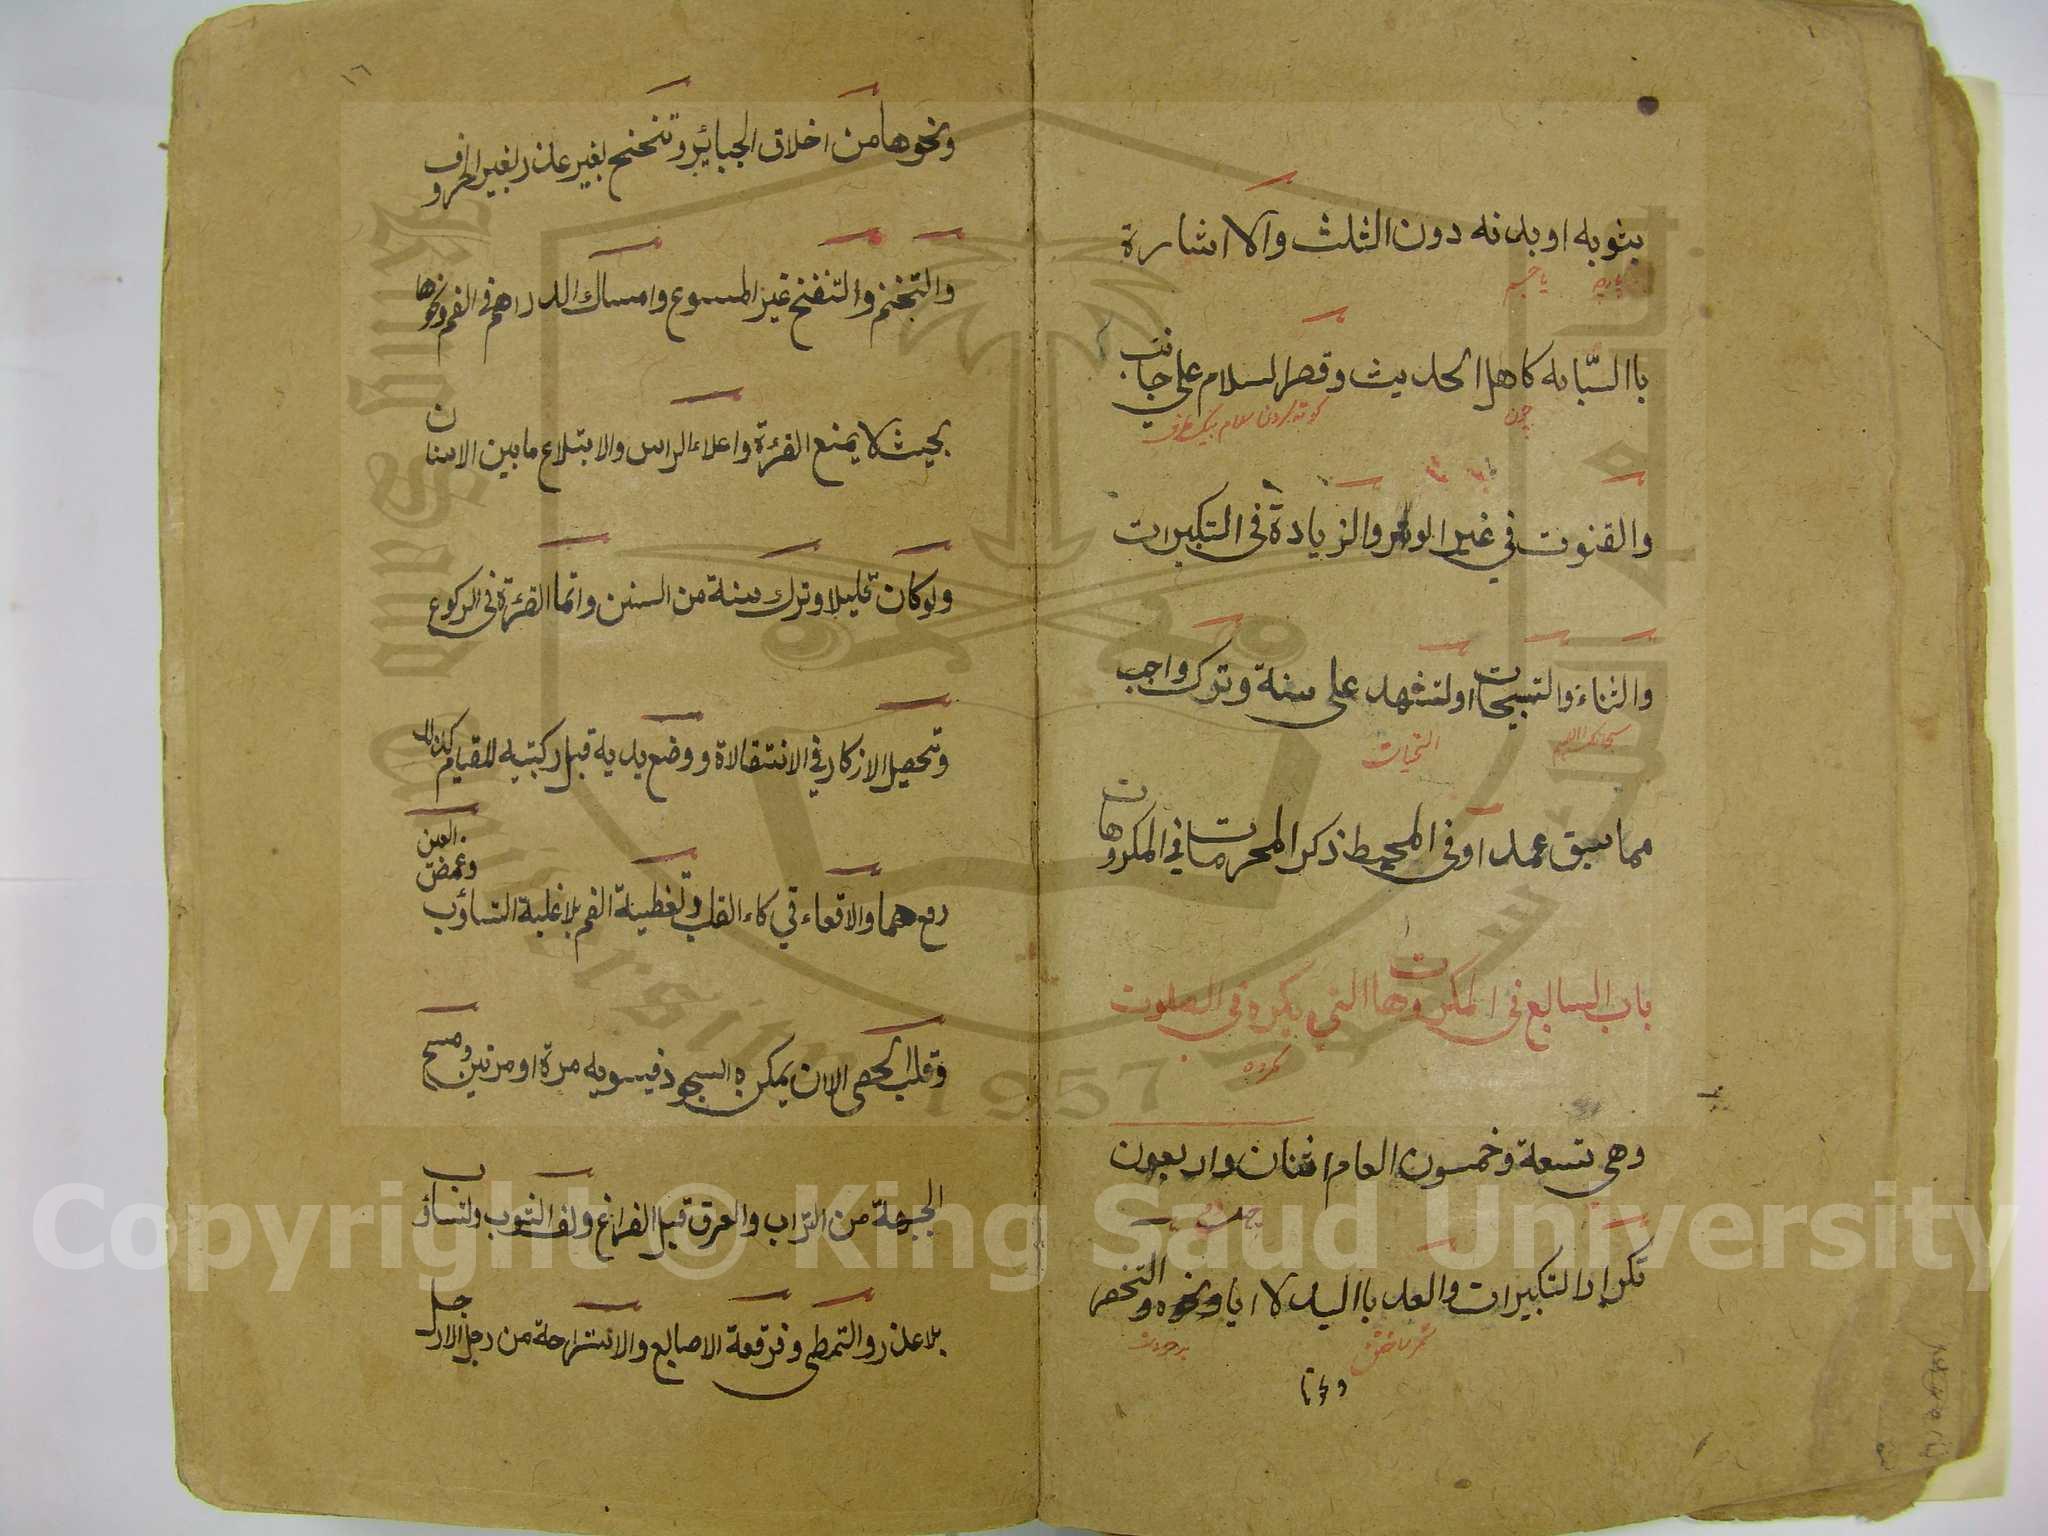 بثوبه او بدنه دون الثلث والاشارة
باالسّبابه كاهل الحديث وقصر السلام على جانب
كوته كردن سلام بيك طرف
والقنوت في غير الوتر والزيادة في التكبيرات
والثناء والتسبيحات اولتشهد على سنة وترك واجب
سبحانك اللهم
التحيات
مما سبق عمدا وفى المحيط ذكر المحرمات في المكروهات
باب السابع في المكروهات التي يكره في الصلوت
وهى تسعة وخمسون العام اثنان واربعون
تكرار التكبيرات والعد باليد لا ايا ونحوه والتخصر
١٦
ونحوها من اخلاق الجبائر وتنحنح بغير عذر بغير الحروف
والتنخنم والتنفخ غير المسموع وامساك الدراهم في الفم ونحوها
بحيث لا يمنع القرءة واعلاء الراس والابتلاع ما بين الاسنان
ولو كان قليلا وترك سنة من السنن واتما القرءة في الركوع
وتحصيل الاذكار في الانتقالاة ووضع يديه قبل ركبتيه للقيام كذلك
رفعهما والاقعاء في كاء القلب وتغطية الفم بلا غلبة التساؤب
وغمض العين
وقلب الحصى الا ان يمكن ه السجود فيسويه مرة او مرتين ومسح
الجبهة من التراب والعرق قبل الفراغ ولف الثوب ولتساؤب
بلا عذر والتمطى وفرقعة الاصابع والاستراحة من رجل الا رجل
Copyright © King Saud University
King Saud University
1957